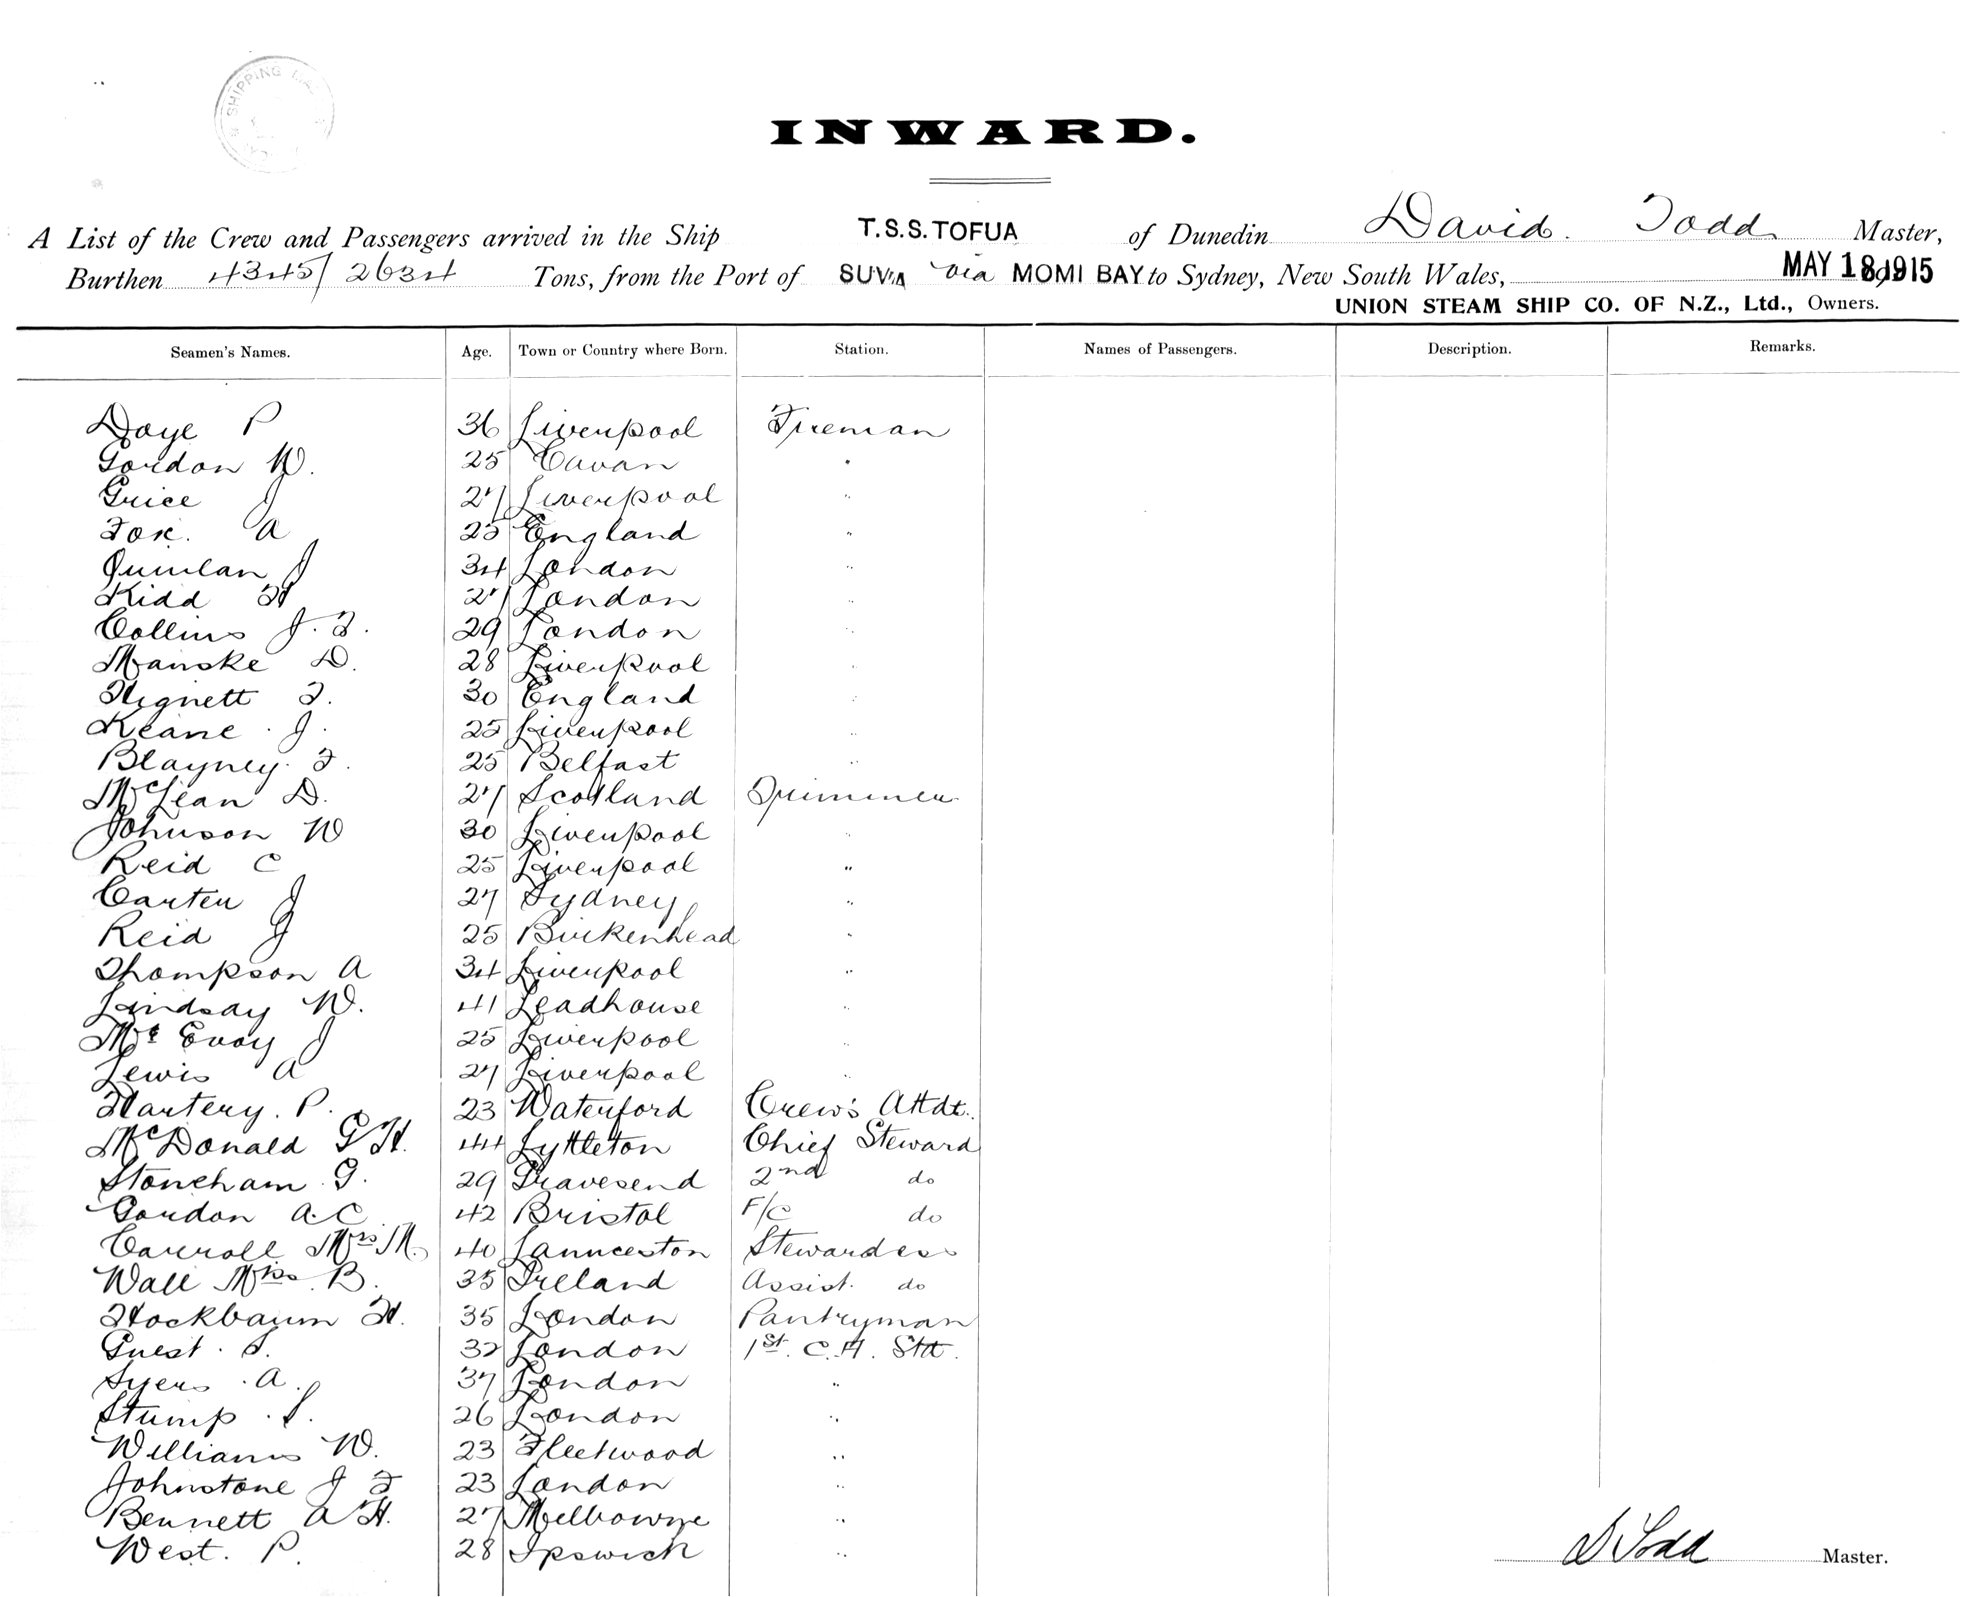 SHIPPING
INWARD.
A List of the Crew and Passengers arrived in the Ship T.S.S. TOFUA of Dunedin David Todd Master,
Burthen 4345/2634 Tons, from the Port of SUVA via MOMI BAY to Sydney, New South Wales, MAY 18 1915
UNION STEAM SHIP CO. OF N.Z., Ltd., Owners.
Seamen's Names. Age. Town or Country where Born. Station. Names of Passengers. Description. Remarks.
Doye P 36 Liverpool Fireman
Gordon W. 25 Cavan "
Grice J 27 Liverpool "
Fox. A 25 England "
Quinlan J 34 London "
Kidd H 27 London "
Collins J. F. 29 London "
Manske D. 28 Liverpool "
Hignett F. 30 England "
Keane J. 25 Liverpool "
Blayney F. 25 Belfast "
McLean D. 27 Scotland Trimmer
Johnson W 30 Liverpool "
Reid C 25 Liverpool "
Carter J 27 Sydney "
Reid J 25 Birkenhead "
Thompson A 34 Liverpool "
Lindsay W. 41 Leadhouse "
McEvoy J 25 Liverpool "
Lewis A 27 Liverpool "
Hartery. P. 23 Waterford Crew's Attdt.
McDonald G H. 44 Lyttleton Chief Steward
Stoneham G. 29 Gravesend 2nd do
Gordon A. C. 42 Bristol F/C do
Carroll Mrs M. 40 Launceston Stewardess
Wall Miss B. 35 Ireland Assist. do
Hockbaum H. 35 London Pantryman
Guest. S. 32 London 1st. C. H. Std.
Syers. A. 37 London "
Stump. S. 26 London "
Williams W. 23 Fleetwood "
Johnstone J F 23 London "
Bennett A H. 27 Melbourne "
West. P. 28 Ipswich "
D Todd Master.